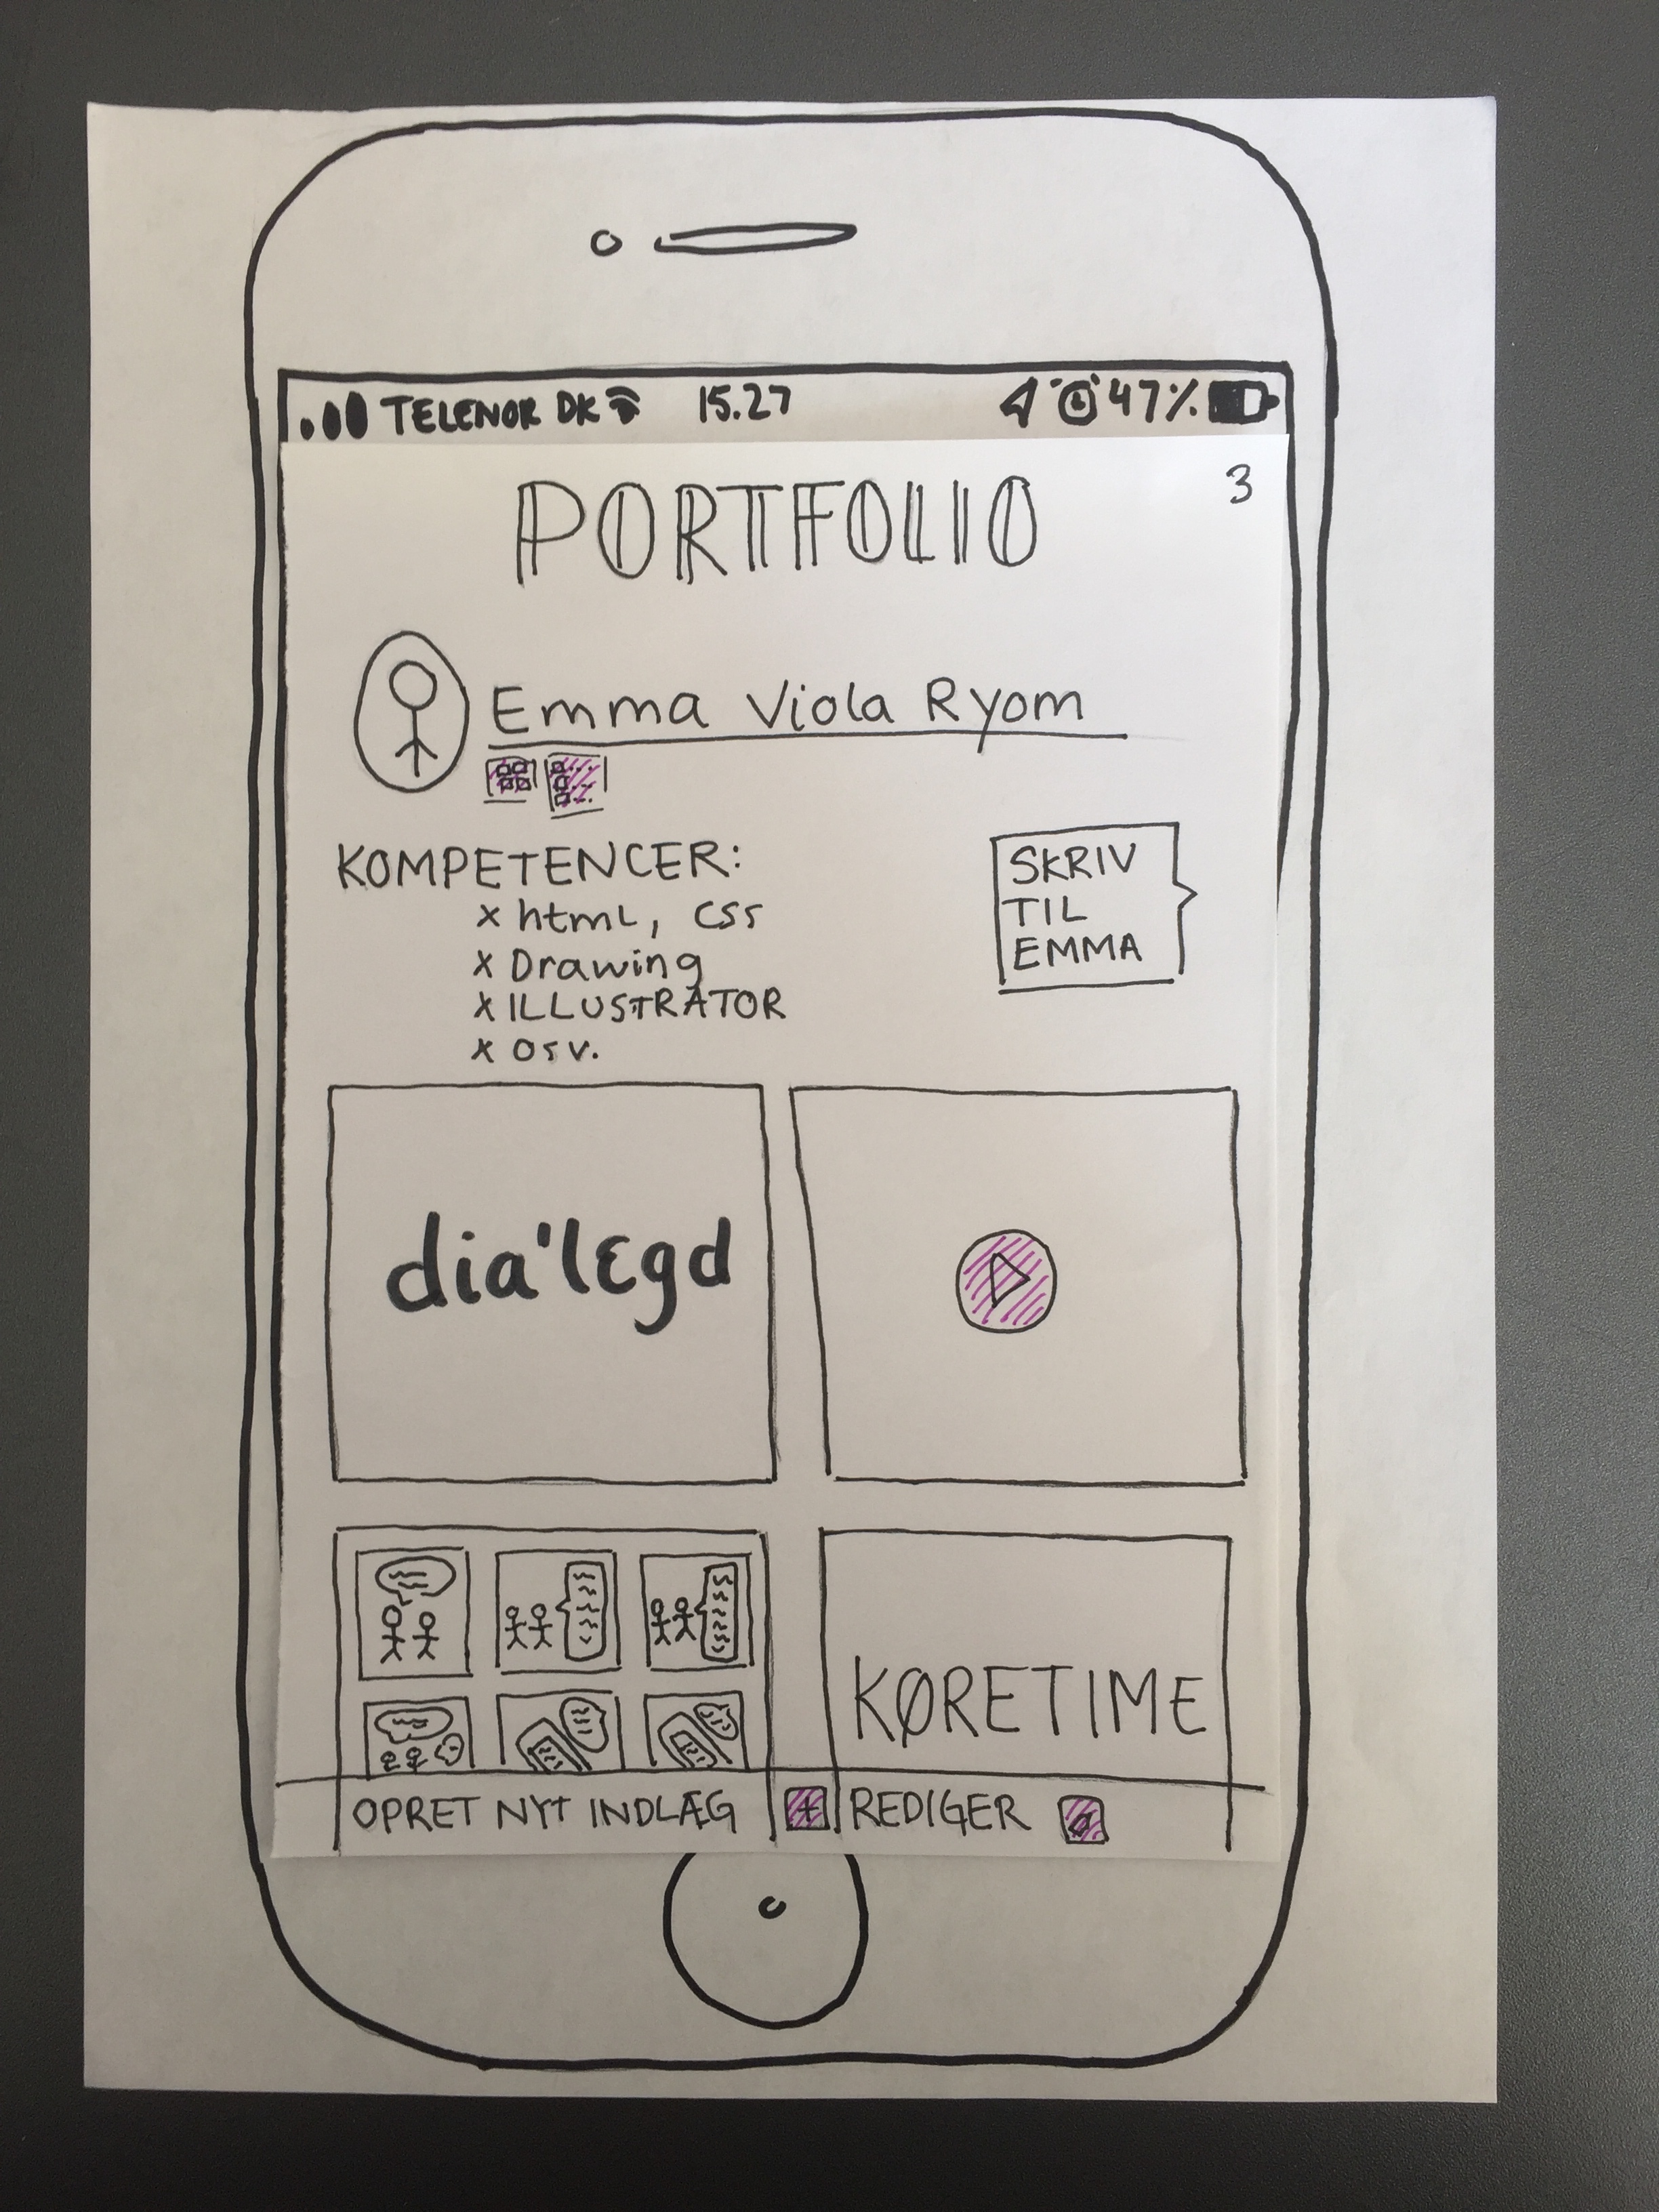 TELENOR DK 15.27 47%
3
PORTFOLIO
Emma Viola Ryom
KOMPETENCER:
x html, css
x Drawing
x ILLUSTRATOR
x osv.
SKRIV
TIL
EMMA
dia'lɛgd
KØRETIME
OPRET NYT INDLÆG + REDIGER